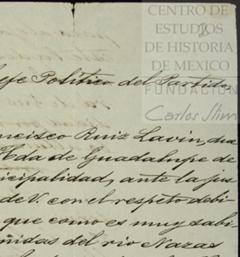 CENTRO DE
ESTUDIOS
DE HISTORIA
DE MEXICO
FUNDACIÓN
Carlos Slim
efe Político del Partido
ncisco Ruiz Lavin, due
Hda de Guadalupe de
icipalidad, ante la jus
de V. con el respeto debi
que como es muy sabi
ñidas del rio Nazas